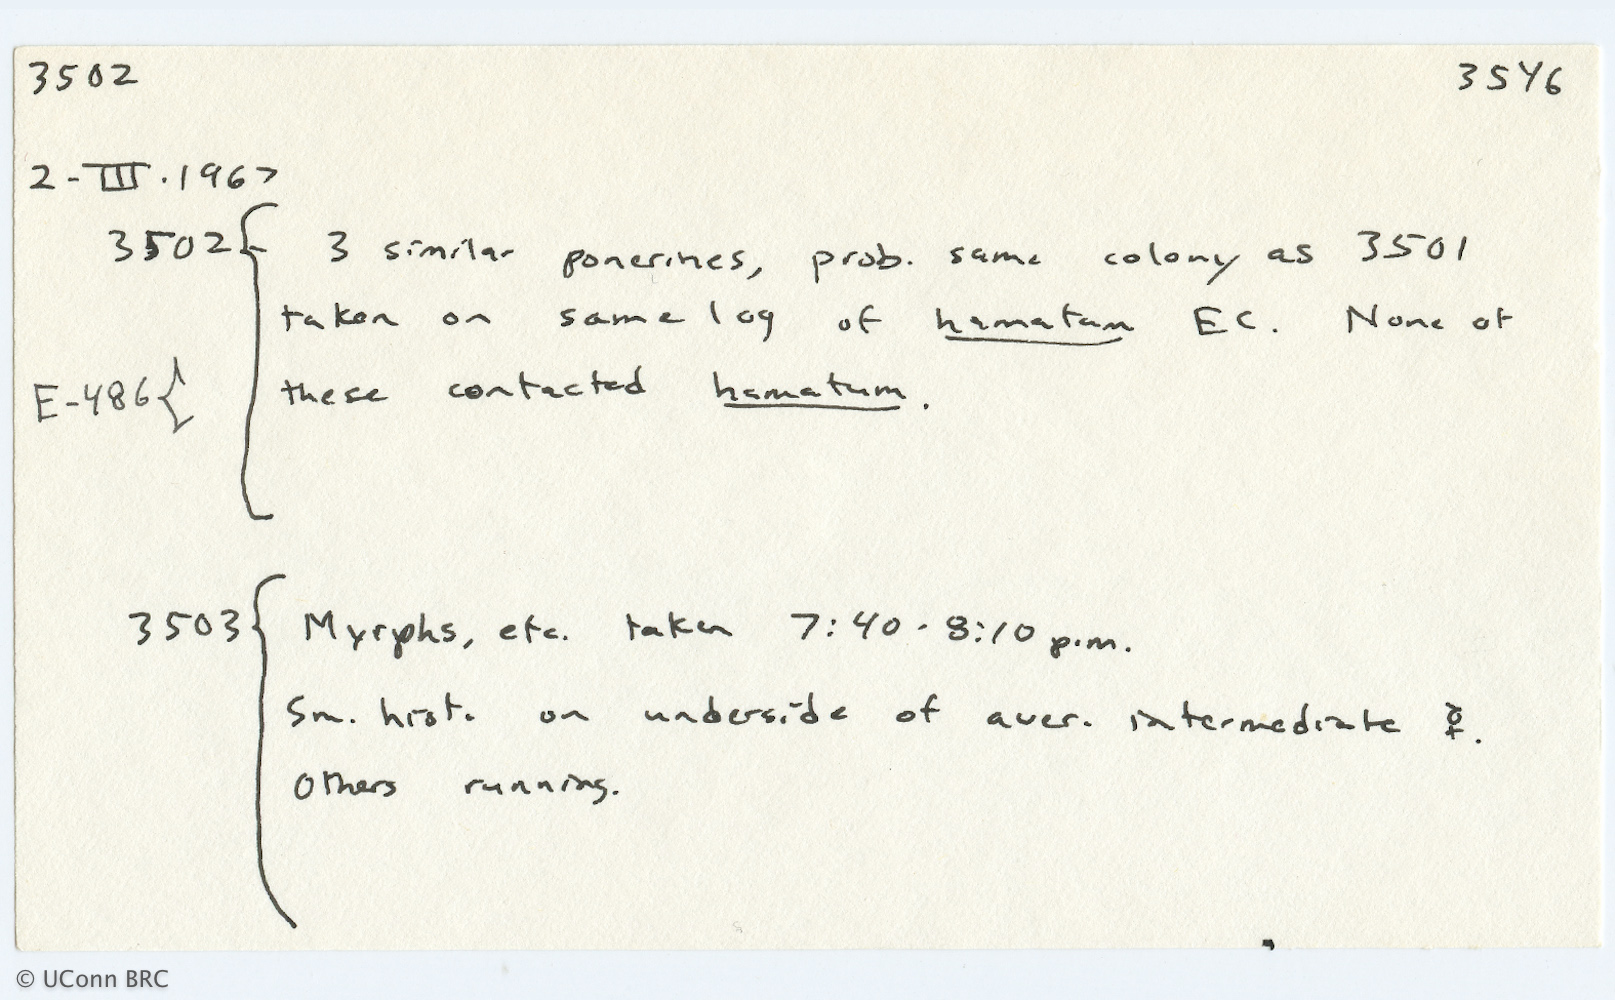 3502 3546
2-III.1967
3502 3 similar ponerines, prob. same colony as 3501
taken on same log of hamatum EC. None of
E-486 these contacted hamatum.
3503 Myrphs, etc. taken 7:40-8:10 p.m.
Sm. hist. on underside of aver. intermediate ☿.
Others running.
© UConn BRC